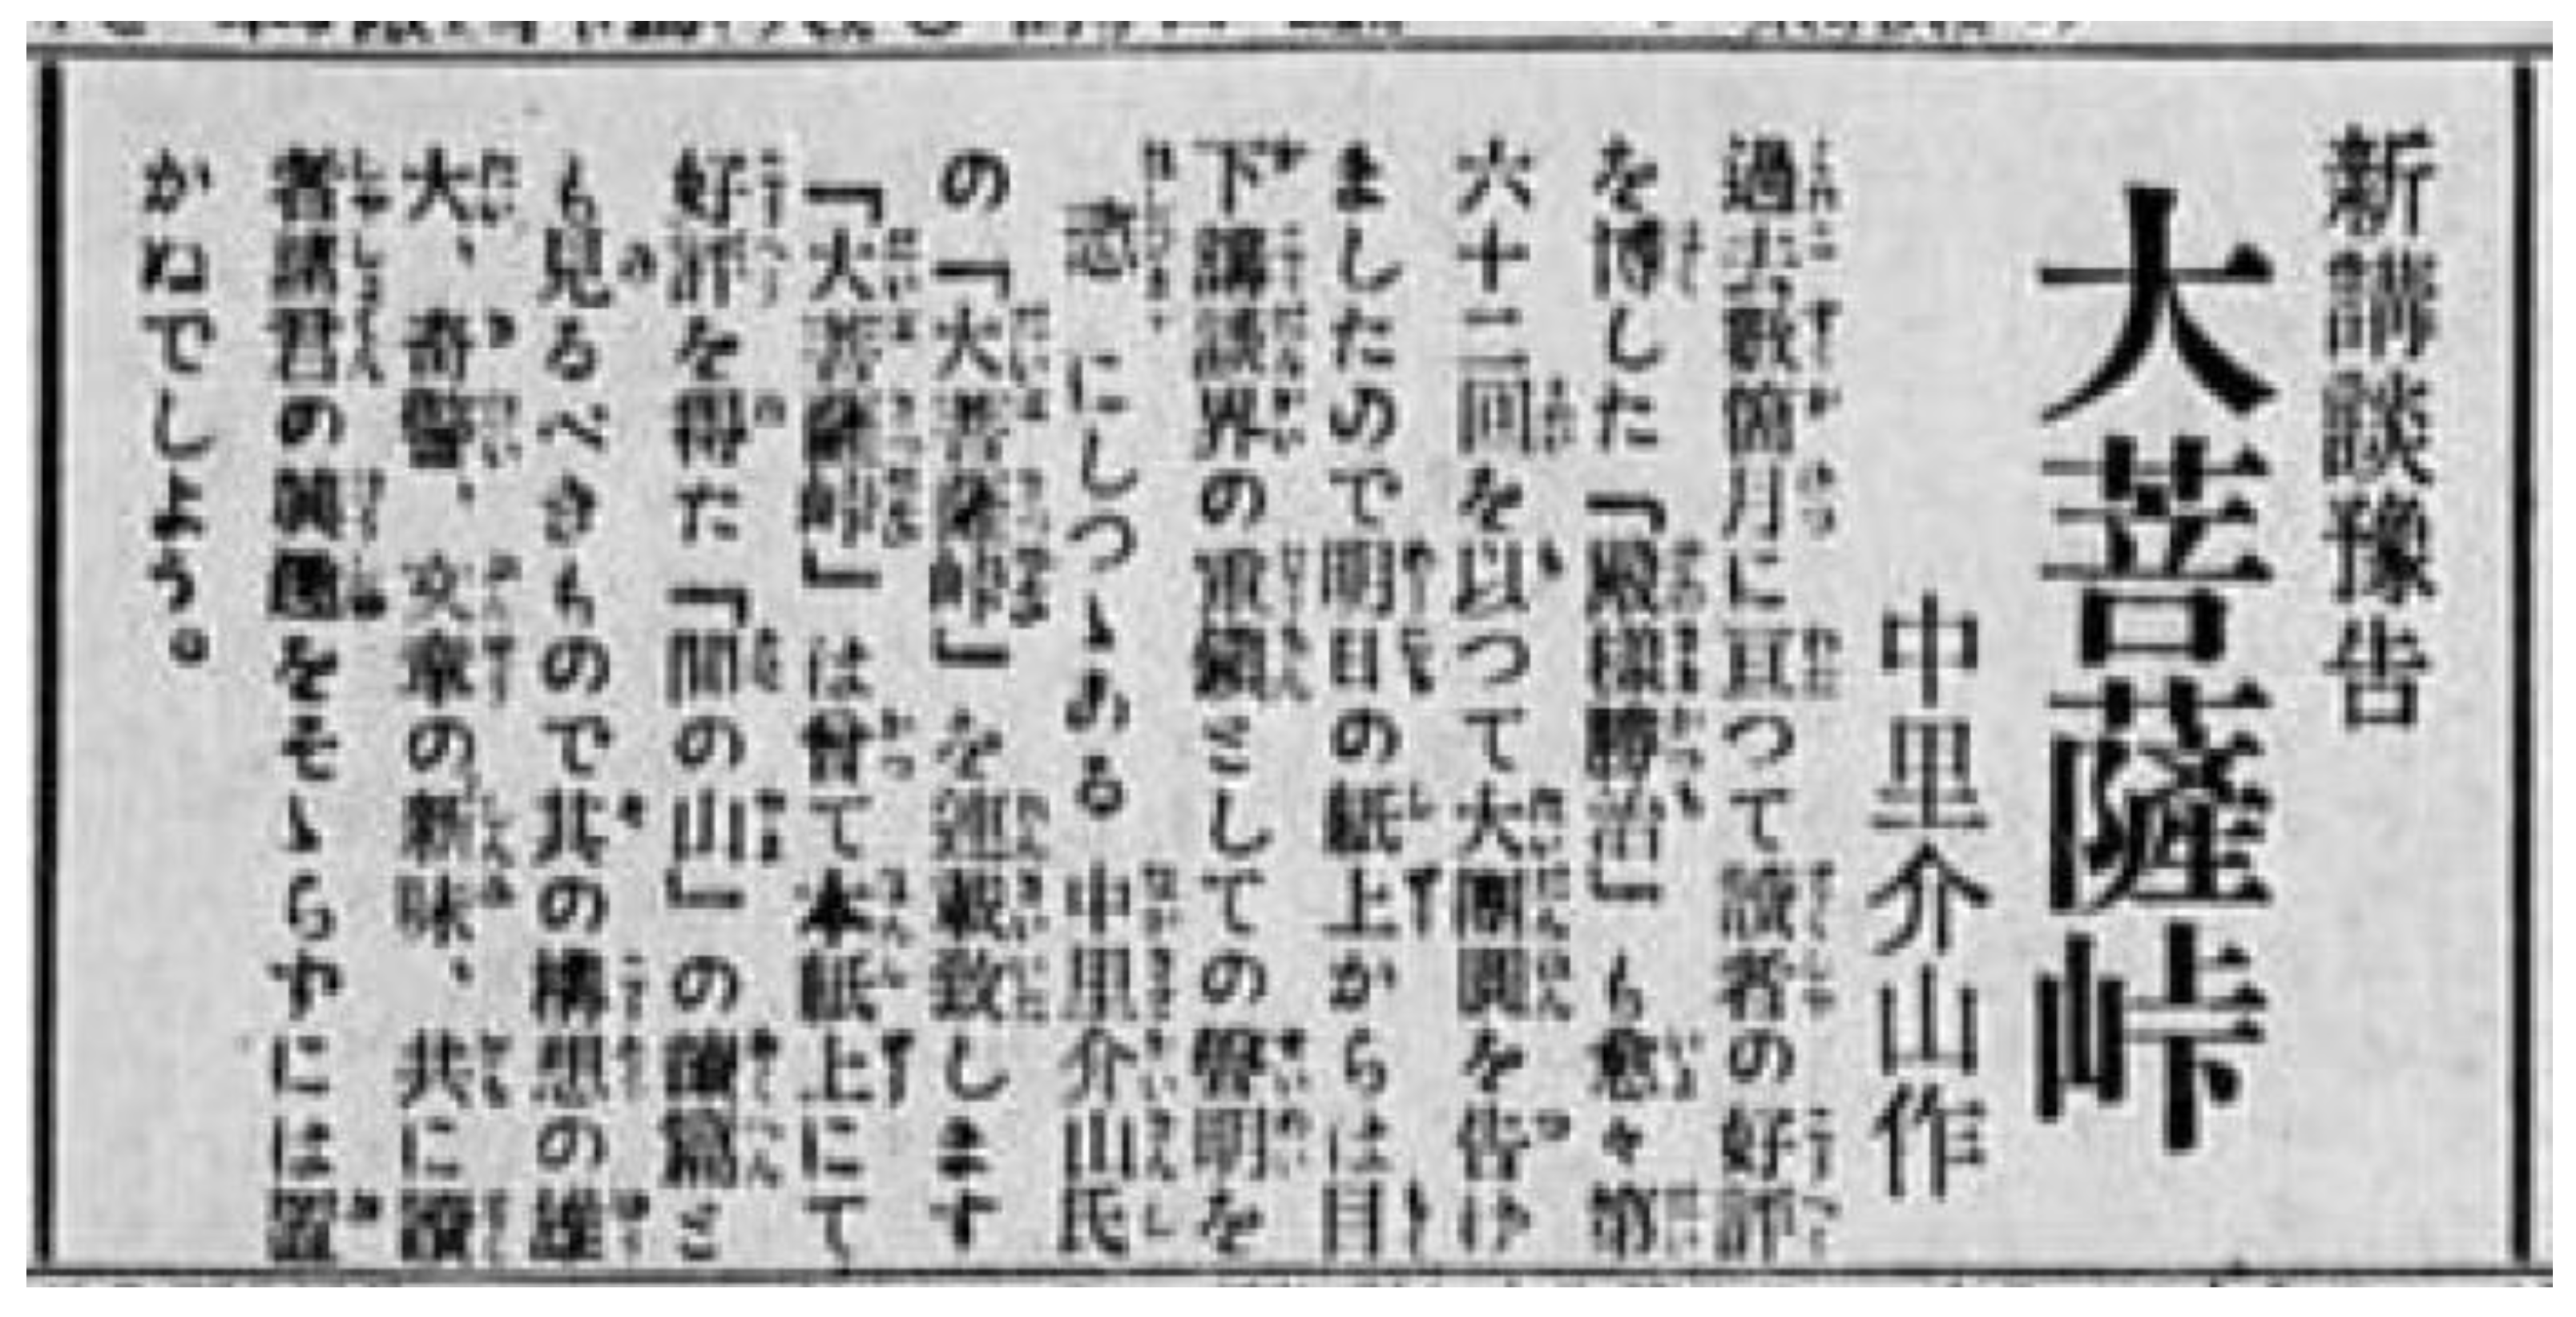 新講談豫告
大菩薩峠
中里介山作
過去數箇月に亙つて讀者の好評
を博した「殿様勝治」も愈々第
六十二回を以つて大團圓を告げ
ましたので明日の紙上からは目
下講談界の重鎭としての聲明を
恣にしつゝある中里介山氏
の「大菩薩峠」を連載致します
「大菩薩峠」は曾て本紙上にて
好評を得た「間の山」の後篇と
も見るべきもので其の構想の雄
大、奇警、文章の新味、共に讀
者諸君の興趣をそゝらずには置
かぬでしよう。